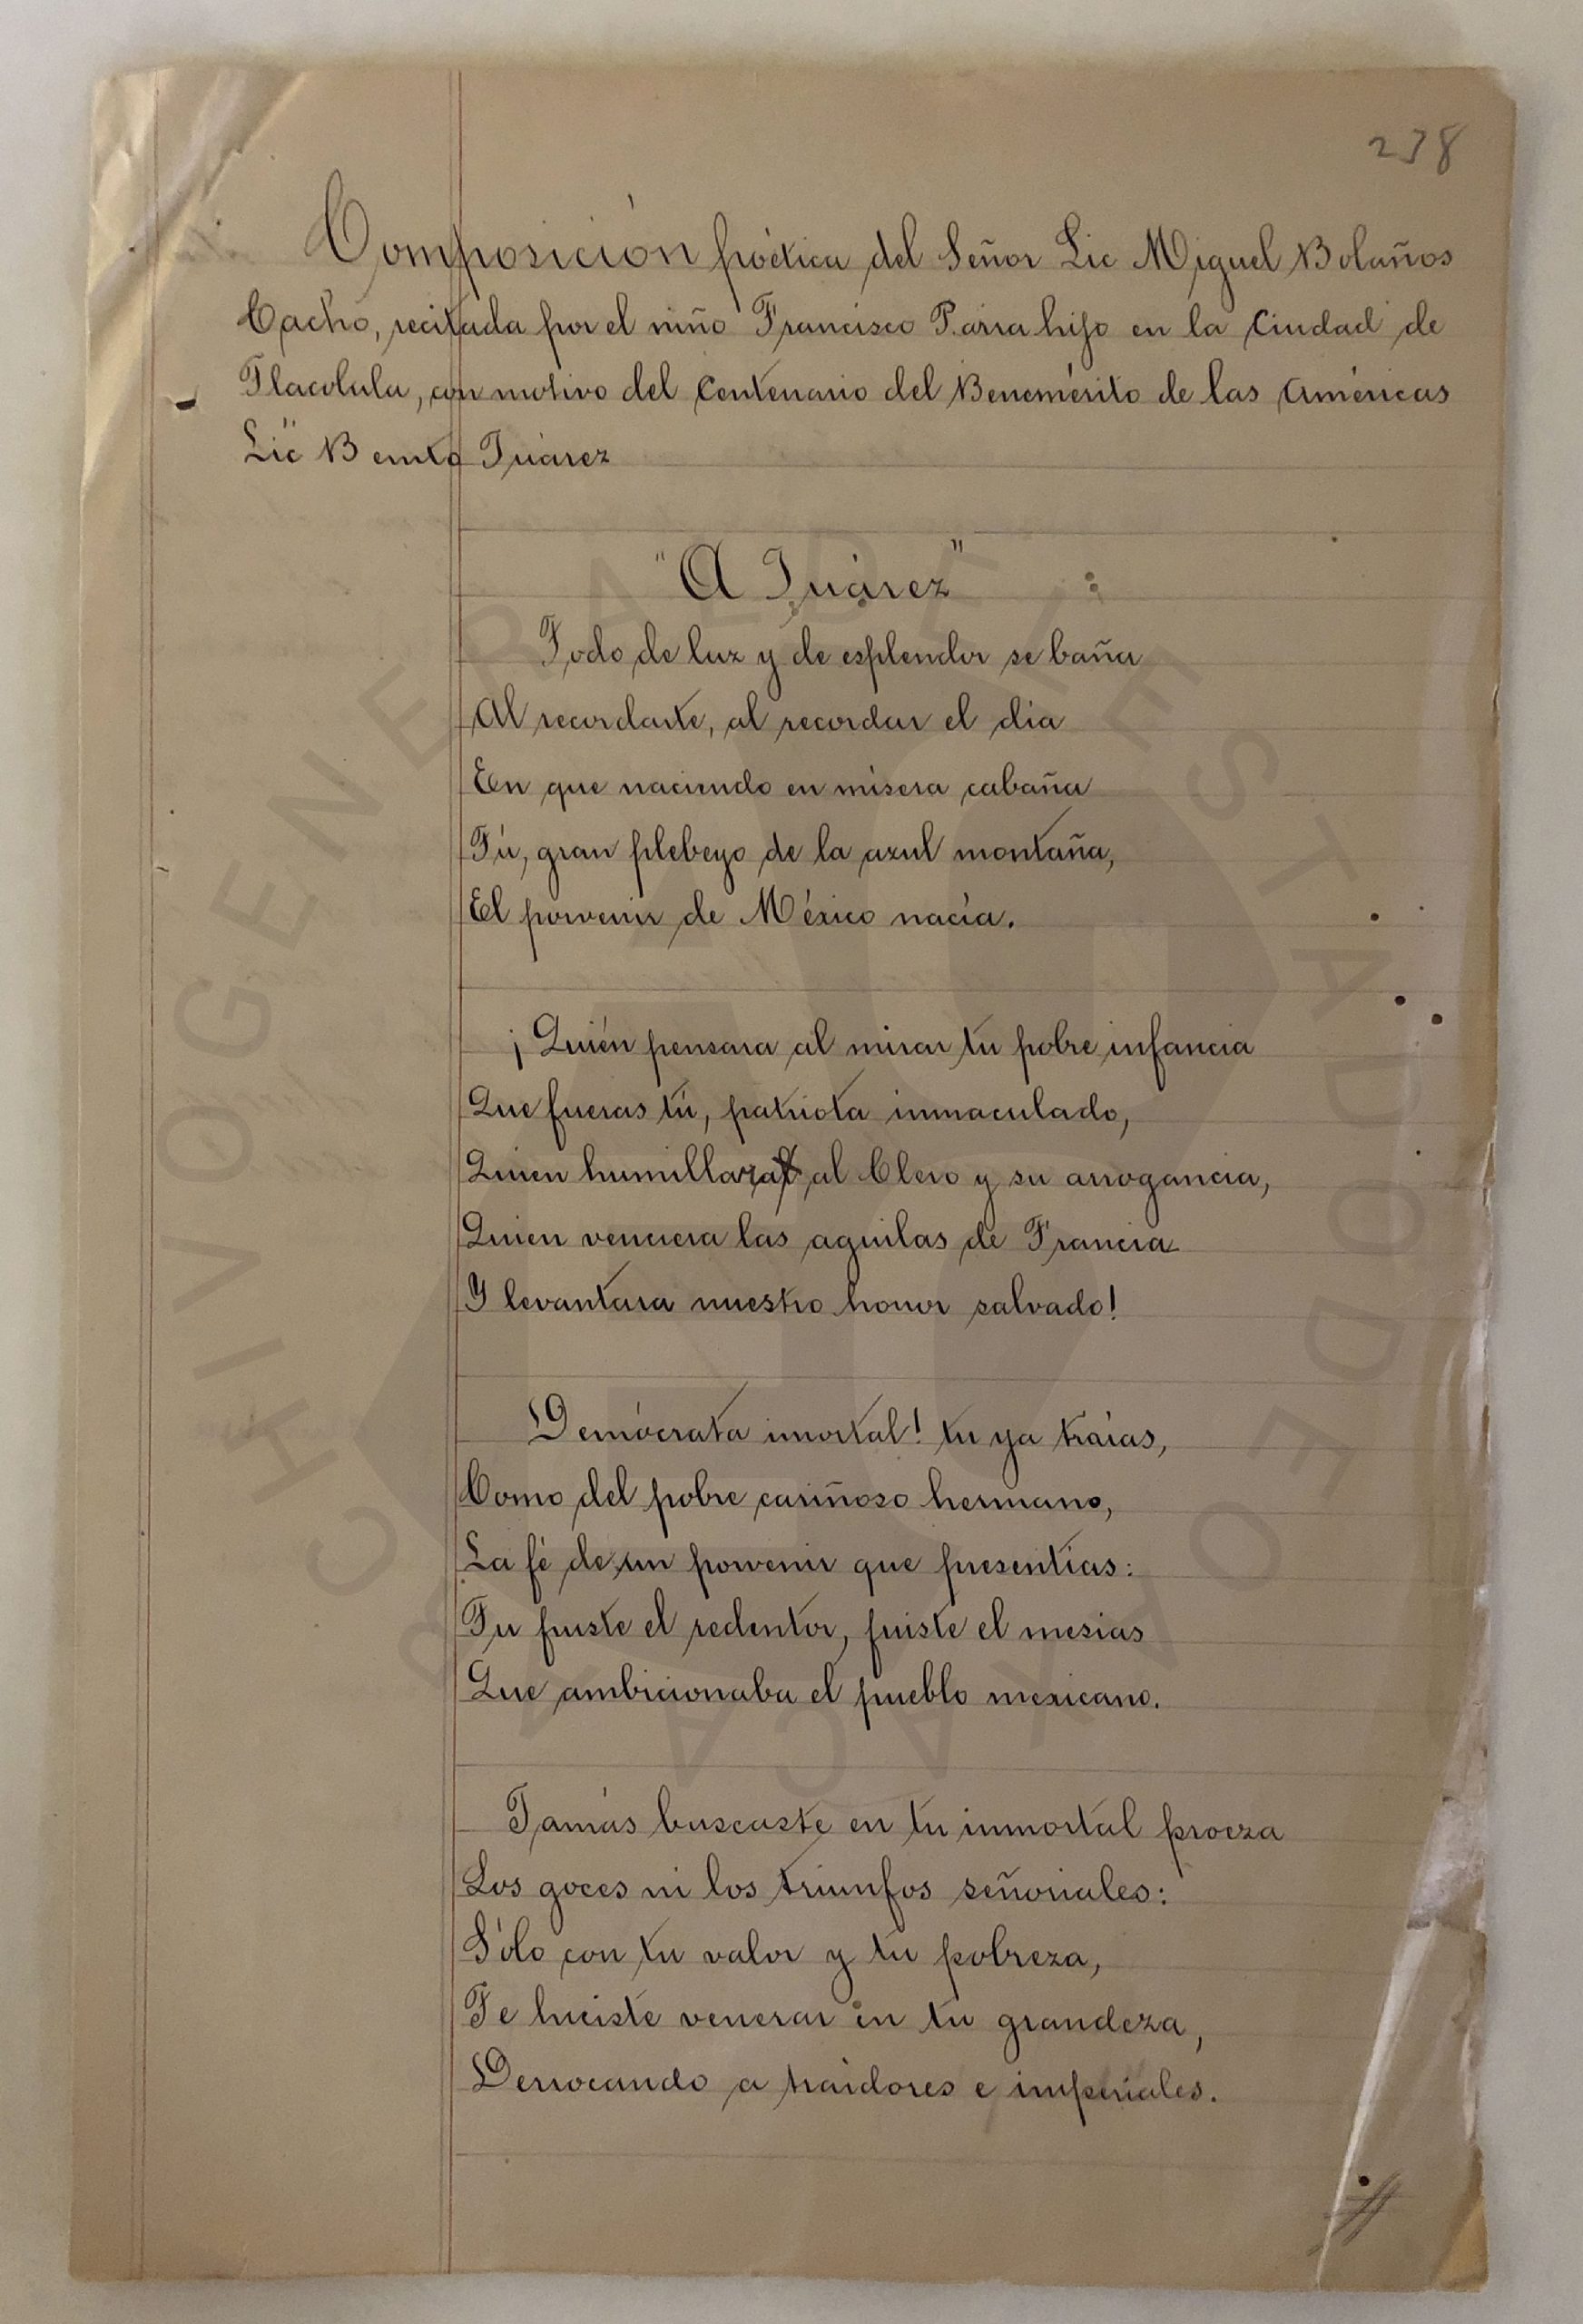 238
Composición poética del Señor Lic Miguel Bolaños
Cacho, recitada por el niño Francisco Parra hijo en la Ciudad de
Tlacolula, con motivo del Centenario del Benemérito de las Américas
Lic Benito Juárez
"A Juárez"
Todo de luz y de esplendor se baña
Al recordarte, al recordar el día
En que naciendo en mísera cabaña
Tú, gran plebeyo de la azul montaña,
El porvenir de México nacía.
¡Quién pensara al mirar tu pobre infancia
Que fueras tú, patriota inmaculado,
Quien humillara al Clero y su arrogancia,
Quien venciera las aguilas de Francia
Y levantara nuestro honor salvado!
Demócrata imortal! tu ya traías,
Como del pobre cariñoso hermano,
La fé de un porvenir que presentías:
Tu fuiste el redentor, fuiste el mesias
Que ambicionaba el pueblo mexicano.
Jamás buscaste en tu inmortal proeza
Los goces ni los triunfos señoriales:
Sólo con tu valor y tu pobreza,
Te hiciste venerar en tu grandeza,
Derrocando a traidores e imperiales.
ARCHIVO GENERAL DEL ESTADO DE OAXACA